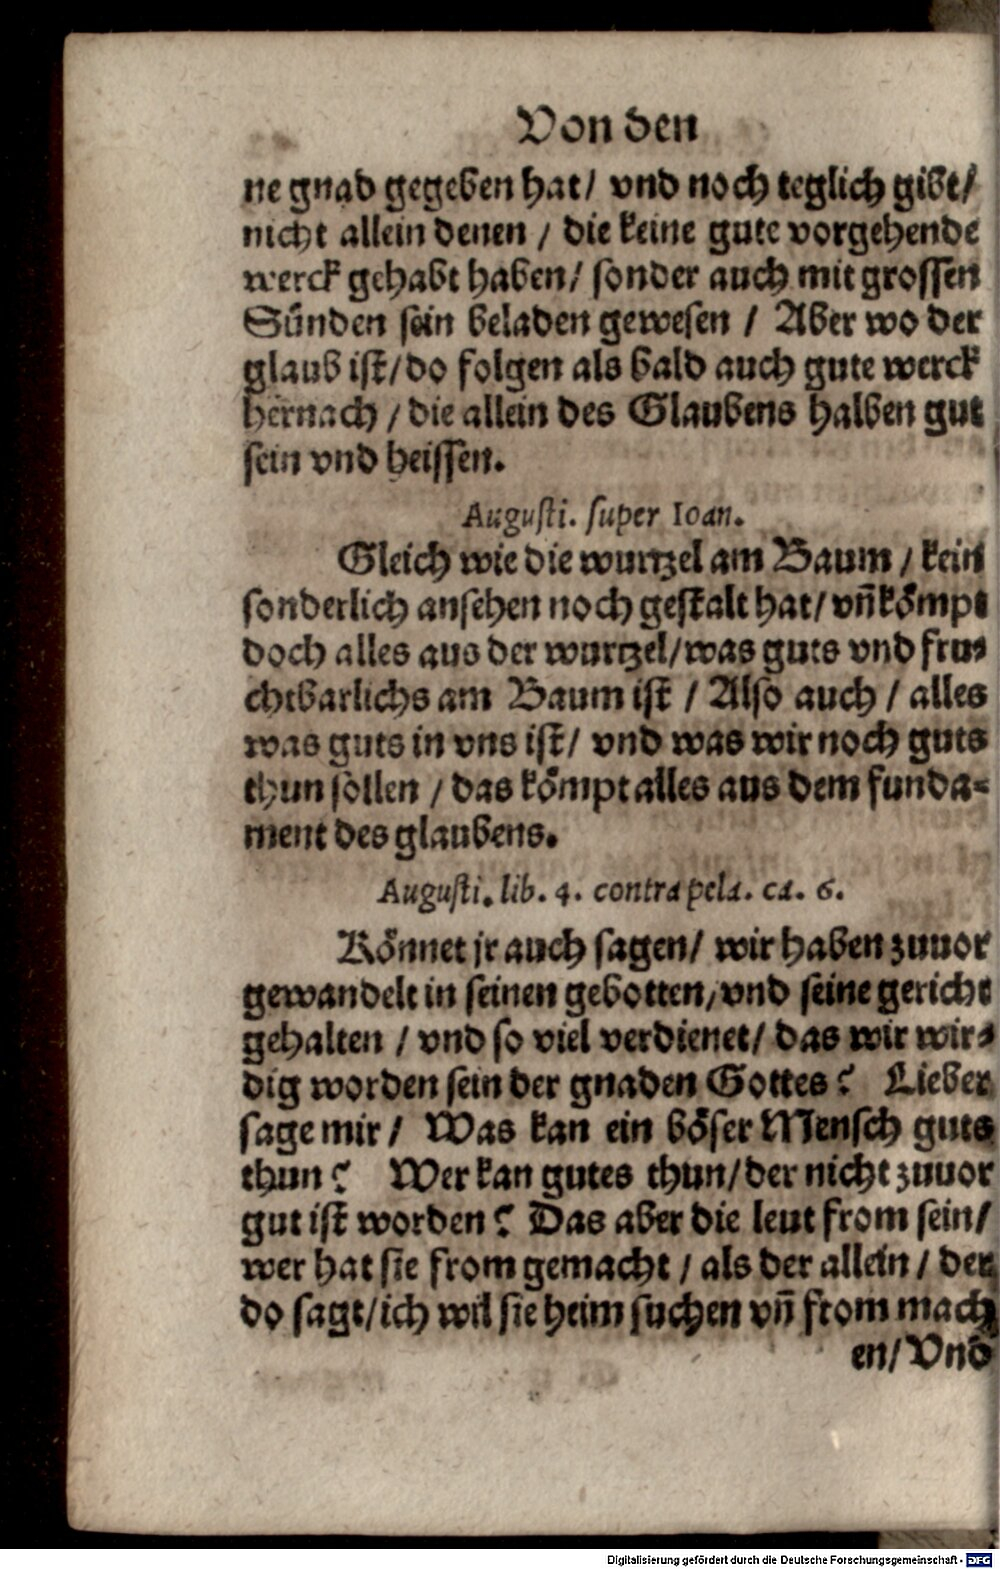 Von den
ne gnad gegeben hat/ vnd noch teglich gibt/
nicht allein denen / die keine gute vorgehende
werck gehabt haben/ sonder auch mit grossen
Sünden sein beladen gewesen / Aber wo der
glaub ist/do folgen als bald auch gute werck
hernach / die allein des Glaubens halben gut
sein vnd heissen.
Augusti. super Ioan.
Gleich wie die wurtzel am Baum / kein
sonderlich ansehen noch gestalt hat/ vñ kömpt
doch alles aus der wurtzel/was guts vnd fru⸗
chtbarlichs am Baum ist / Also auch / alles
was guts in vns ist/ vnd was wir noch guts
thun sollen / das kömpt alles aus dem funda⸗
ment des glaubens.
Augusti. lib. 4. contra pela. ca. 6.
Könnet jr auch sagen/ wir haben zuuor
gewandelt in seinen gebotten/vnd seine gericht
gehalten / vnd so viel verdienet/ das wir wir⸗
dig worden sein der gnaden Gottes? Lieber
sage mir/ Was kan ein böser Mensch guts
thun? Wer kan gutes thun/der nicht zuuor
gut ist worden? Das aber die leut from sein/
wer hat sie from gemacht / als der allein / der
do sagt/ich wil sie heim suchen vñ from mach
en/Vnd
Digitalisierung gefördert durch die Deutsche Forschungsgemeinschaft - DFG